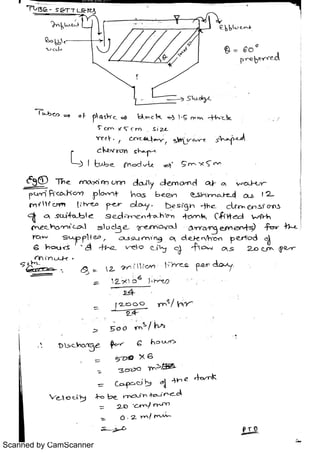 TUBE - SETTLERS
Influent
Effluent
Baffle
wall
θ = 60°
preferred
Sludge
Tubes → of plastic → black → 1.5 mm thick
5 cm x 5 cm size
rect., circular, square shaped
chevron shape
1 tube module → 5m x 5m
The maximum daily demand at a water
purification plant has been estimated as 12
million litres per day. Design the dimensions
of a suitable sedimentation tank (fitted with
mechanical sludge removal arrangements) for the
raw supplies, assuming a detention period of
6 hours & the velocity of flow as 20 cm per
minute.
Q = 12 million litres per day
= 12 x 10⁶ litres
24
= 12000 m³/hr
24
= 500 m³/hr
∴ Discharge for 6 hours
= 500 x 6
= 3000 m³
= Capacity of the tank
Velocity to be maintained
= 20 cm/min
= 0.2 m/min
PTO
Scanned by CamScanner